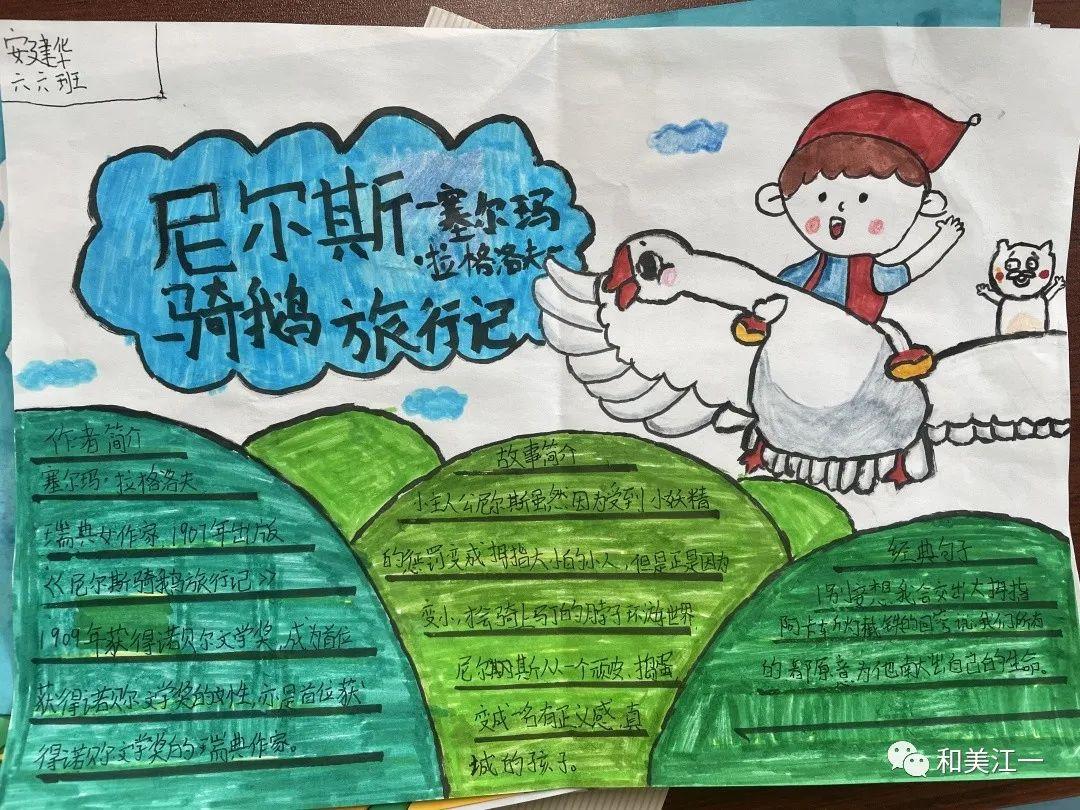 安建华
六六班
尼尔斯
骑鹅旅行记
塞尔玛
·拉格洛夫
作者简介
塞尔玛·拉格洛夫
瑞典女作家，1907年出版
《尼尔斯骑鹅旅行记》
1909年获得诺贝尔文学奖，成为首位
获得诺贝尔文学奖的女性，亦是首位获
得诺贝尔文学奖的瑞典作家。
故事简介
小主人公尼尔斯虽然因为受到小妖精
的惩罚变成拇指大小的小人，但是正是因为
变小，才会骑上马丁的脖子环游世界
尼尔斯从一个顽皮、捣蛋
变成一名有正义感、真
城的孩子。
经典句子
1别妄想我会交出大拇指
阿卡斩钉截铁的回答说，我们所有
的都原意为他献出自己的生命。
和美江一